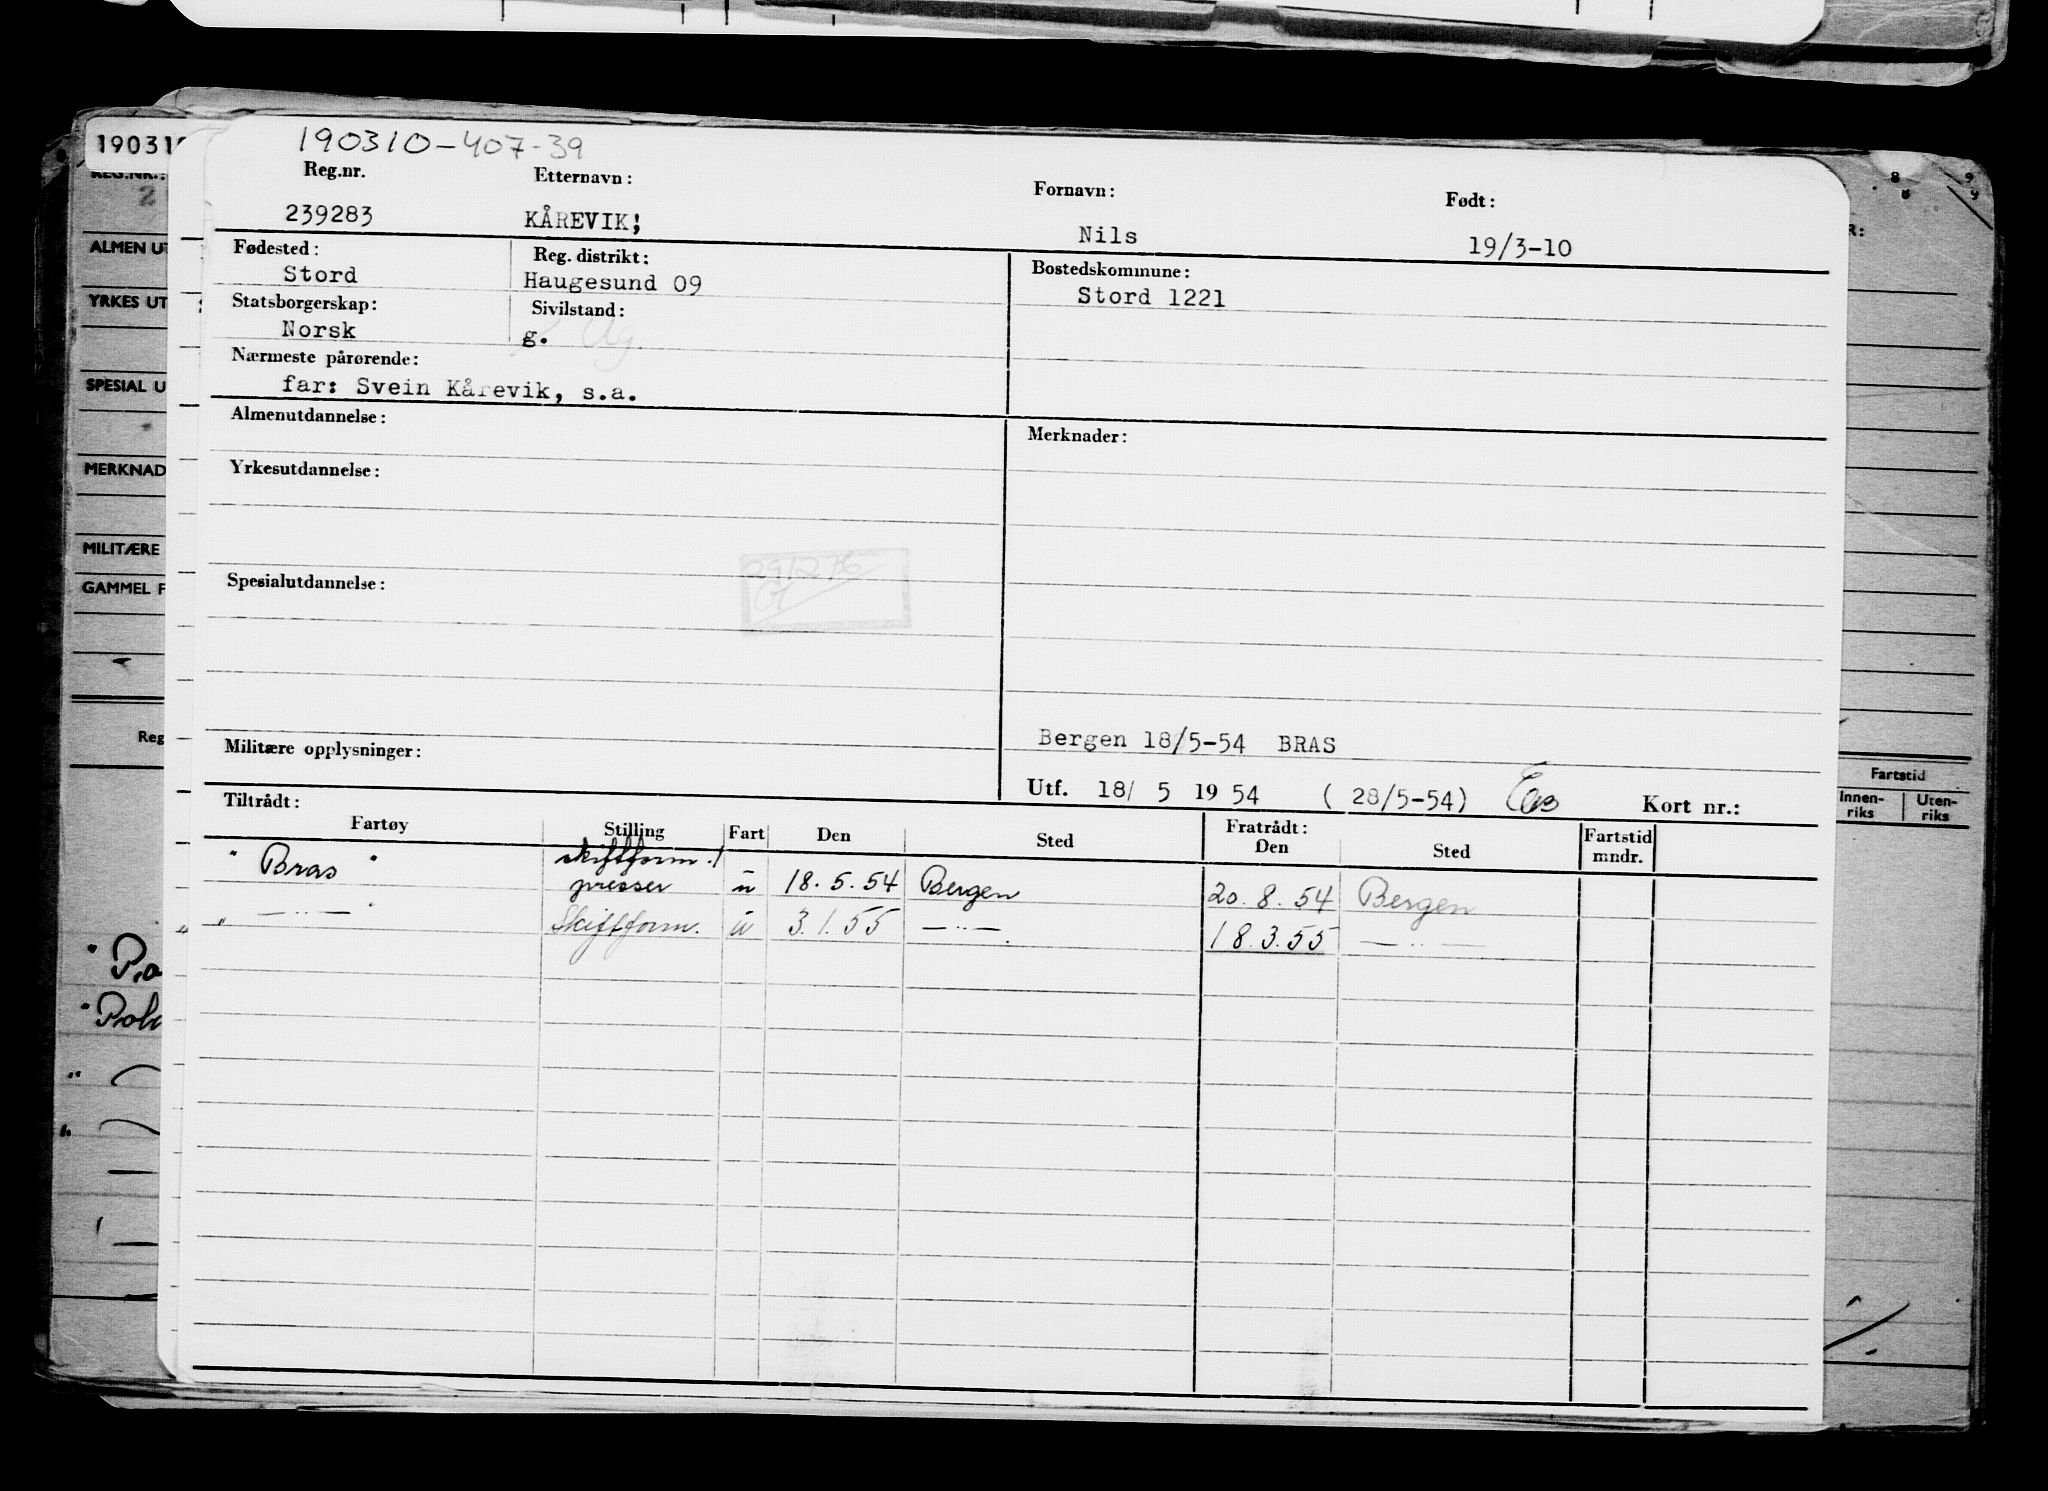 190310-407-39
190310
Reg.nr. Etternavn: Fornavn: Født:
239283 KÅREVIK; Nils 19/3-10
Fødested: Reg. distrikt: Bostedskommune:
Stord Haugesund 09 Stord 1221
Statsborgerskap: Sivilstand:
Norsk g. Ug.
Nærmeste pårørende:
far: Svein Kårevik, s.a.
Almenutdannelse: Merknader:
Yrkesutdannelse:
Spesialutdannelse:
Bergen 18/5-54 BRAS
Militære opplysninger:
Utf. 18/ 5 19 54 ( 28/5-54) Kort nr.:
Tiltrådt: Fratrådt:
Fartøy Stilling Fart Den Sted Den Sted Fartstid mndr.
" Bras " skiftform./
presser u 18.5.54 Bergen 20.8.54 Bergen
" —"— " Skiftform. u 3.1.55 —"— 18.3.55 —"—
REG.NR.:
2
ALMEN UT
YRKES UT
SPESIAL U
MERKNAD
MILITÆRE
GAMMEL F
Reg
R:
Fartstid
Innen-
riks
Uten-
riks